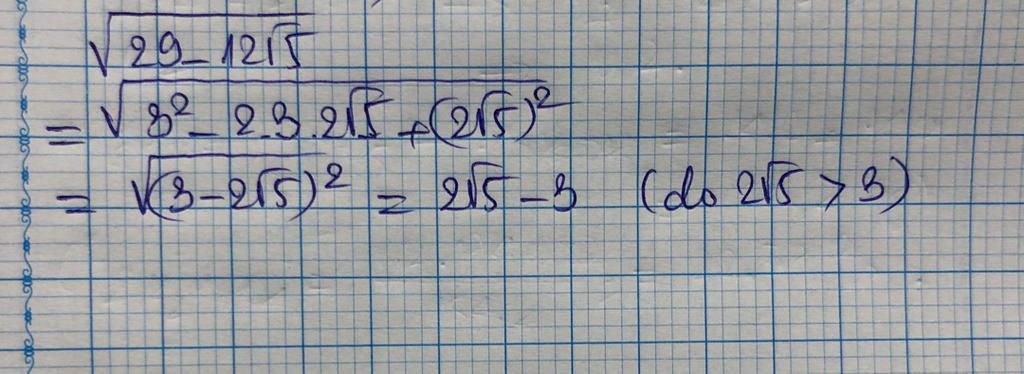 √(29 - 12√5)
= √(3² - 2.3.2√5 + (2√5)²)
= √(3 - 2√5)² = 2√5 - 3 (do 2√5 > 3)